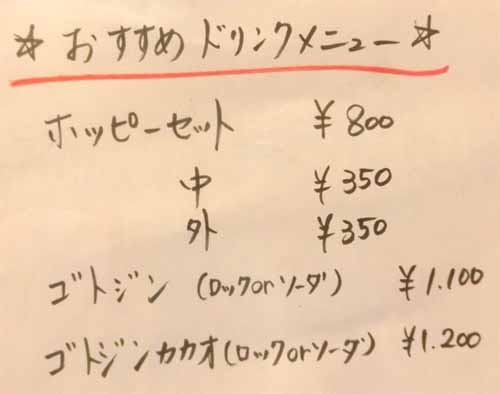 ☆おすすめドリンクメニュー☆
ホッピーセット ¥800
中 ¥350
外 ¥350
ゴトジン (ロックorソーダ) ¥1.100
ゴトジンカカオ(ロックorソーダ) ¥1.200